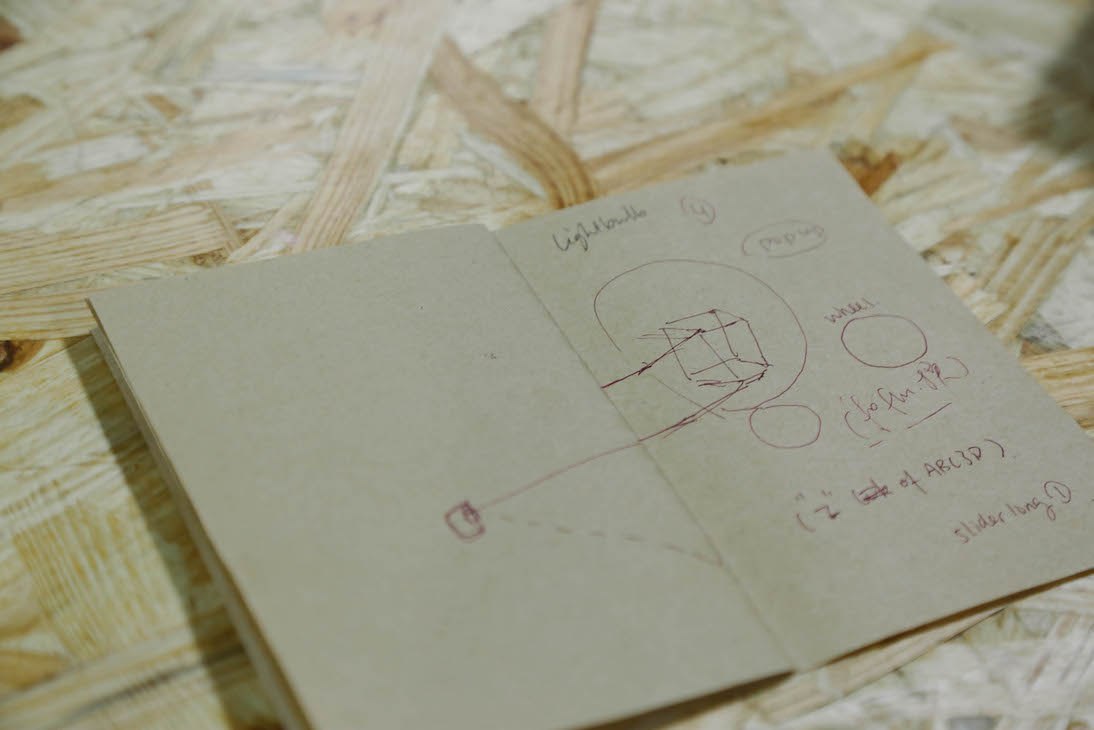 lightbulb (4)
popup
wheel.
("Z" of AB(3D)
slider long ①